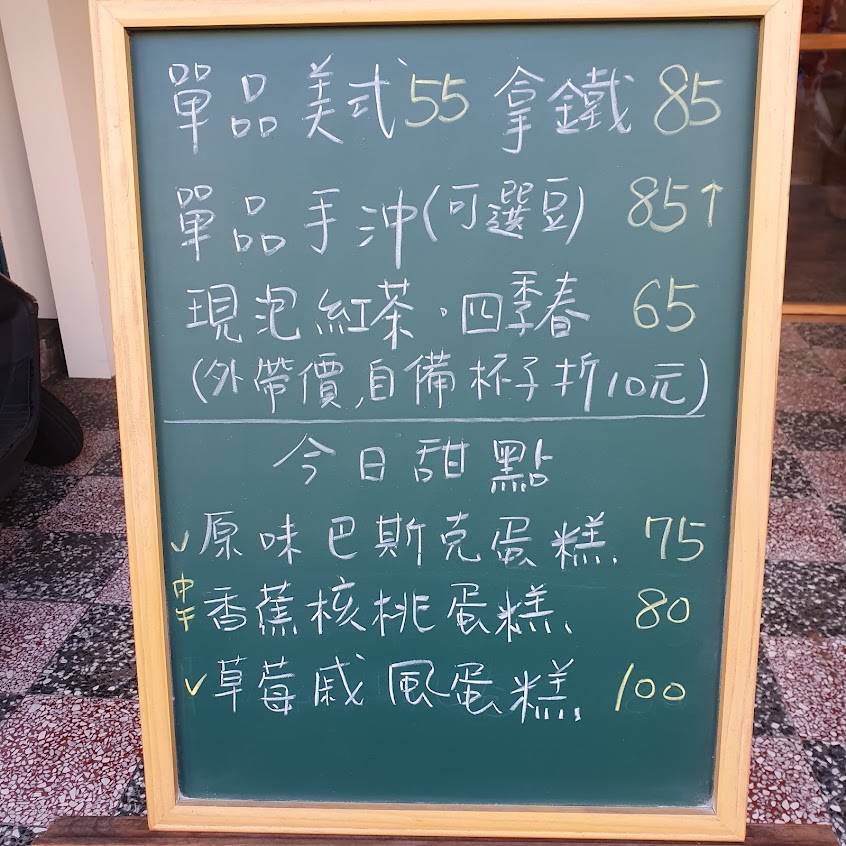 單品美式55 拿鐵 85
單品手沖(可選豆) 85↑
現泡紅茶.四季春 65
(外帶價,自備杯子折10元)
今日甜點
✓原味巴斯克蛋糕. 75
中午香蕉核桃蛋糕、 80
✓草莓戚風蛋糕 100